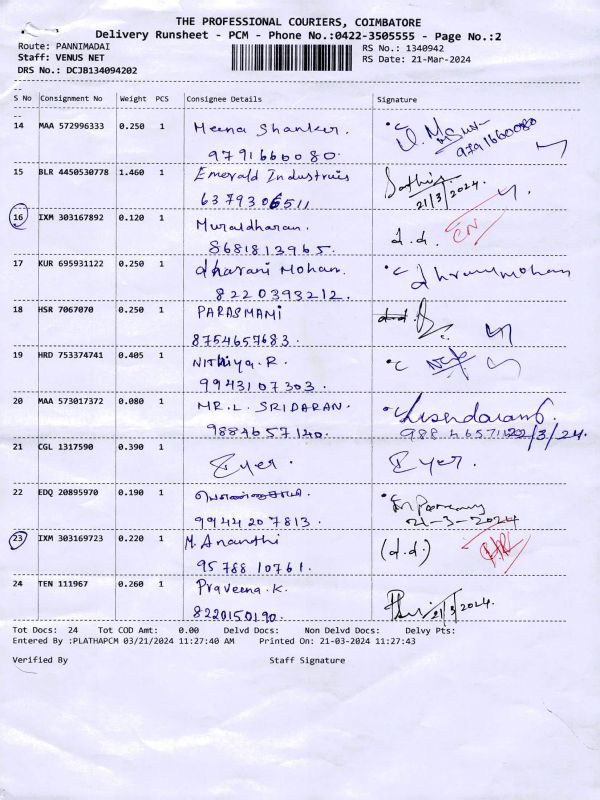 THE PROFESSIONAL COURIERS, COIMBATORE
Delivery Runsheet - PCM - Phone No.:0422-3505555 - Page No.:2
Route: PANNIMADAI RS No.: 1340942
Staff: VENUS NET RS Date: 21-Mar-2024
DRS No.: DCJB134094202
S No Consignment No Weight PCS Consignee Details Signature
14 MAA 572996333 0.250 1 Meena Shanker.
9791660080. 9791660080
15 BLR 4450530778 1.460 1 Emerald Industruis
6379306511 21/3/2024.
16 IXM 303167892 0.120 1 Muraldharan. d.d.
8681813965.
17 KUR 695931122 0.250 1 dharani Mohan.
8220393212.
18 HSR 7067070 0.250 1 PARASMAMi d.d.
8754657683.
19 HRD 753374741 0.405 1 Nithiya.R.
9943107303.
20 MAA 573017372 0.080 1 MR.L. SRIDARAN.
9884657140.
21 CGL 1317590 0.390 1 Eyer. Eyer.
22 EDQ 20895970 0.190 1
9944207813. 21-3-2024
23 IXM 303169723 0.220 1 M. Ananthi (d.d.)
9578810761.
24 TEN 111967 0.260 1 Praveena.K.
8220150190. 21/3/2024.
Tot Docs: 24 Tot COD Amt: 0.00 Delvd Docs: Non Delvd Docs: Delvy Pts:
Entered By :PLATHAPCM 03/21/2024 11:27:40 AM Printed On: 21-03-2024 11:27:43
Verified By Staff Signature